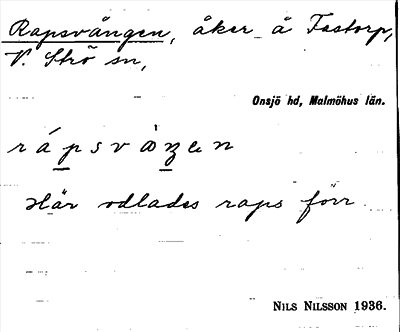 Rapsvången, åker å Fastorp,
V. Strö sn,
Onsjö hd, Malmöhus län.
Här odlades raps förr
NILS NILSSON 1936.